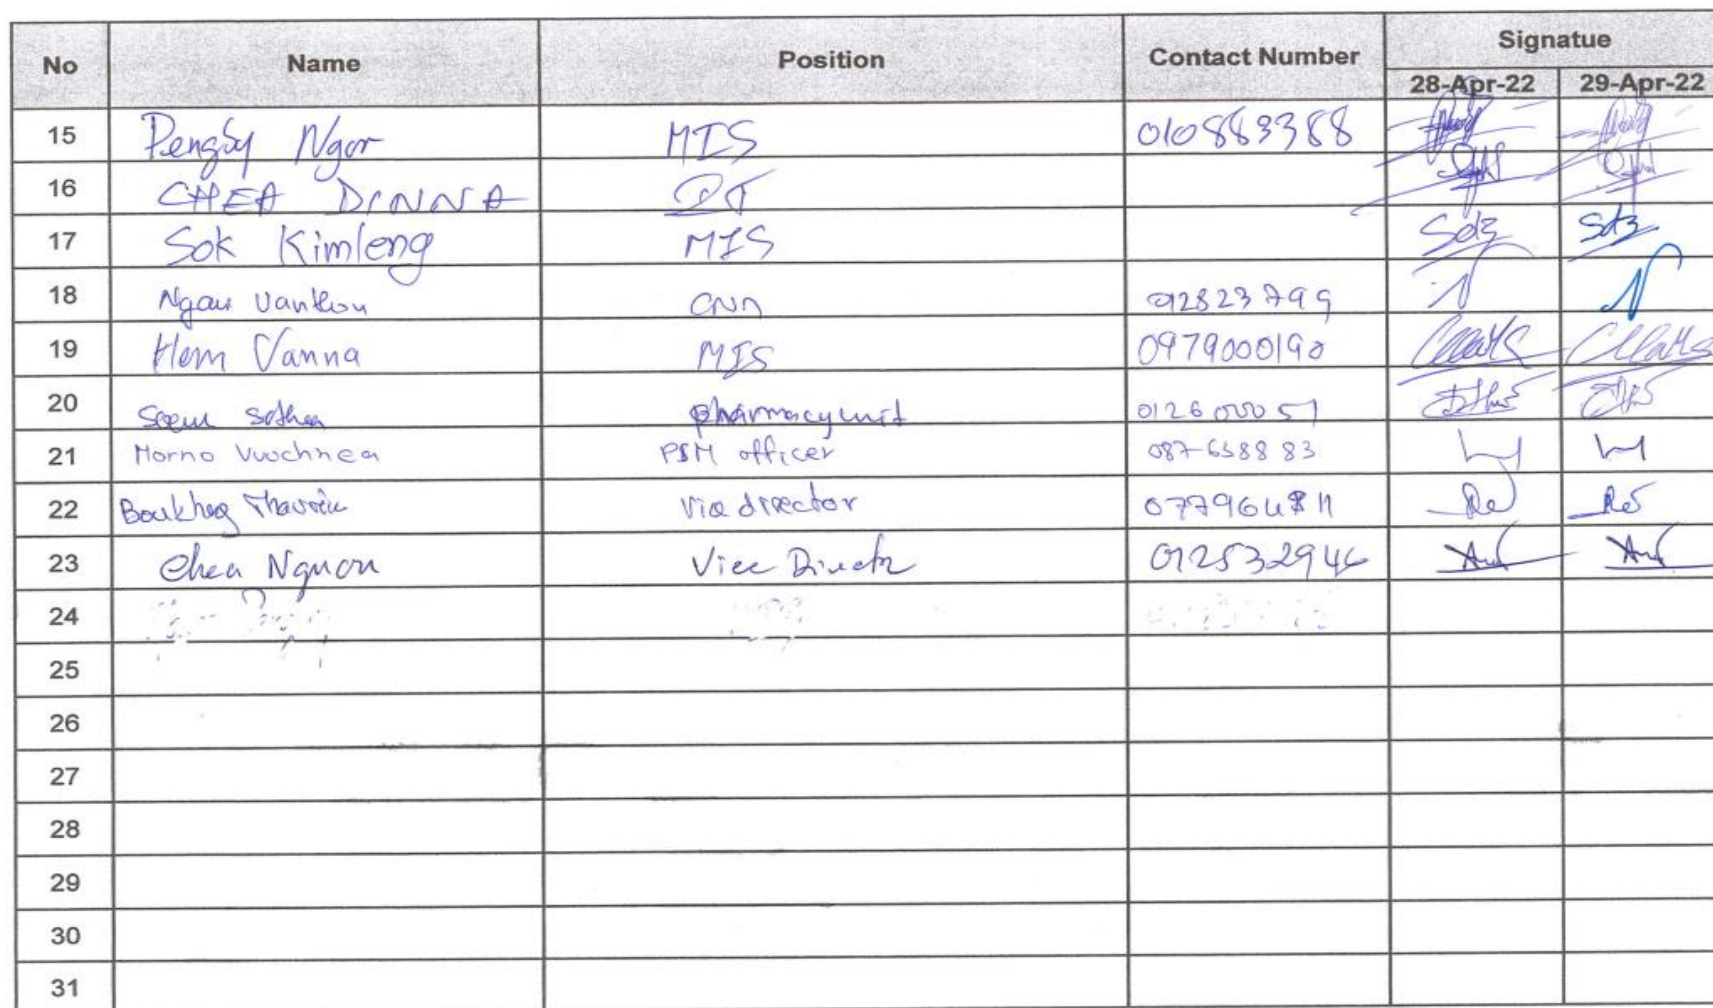 No Name Position Contact Number Signatue
28-Apr-22 29-Apr-22
15 Pengby Ngor MIS 010883388
16 CHEA DINNA IT
17 Sok Kimleng MIS
18 Ngau Vanthou 012823799
19 Hem Vanna MIS 0979000190
20 Soeun Sothea pharmacy unit 012600051
21 Morno Vuochnea PSM officer 087-6388 83
22 director
23 Chea Nguon Vice Director 012532946
24
25
26
27
28
29
30
31